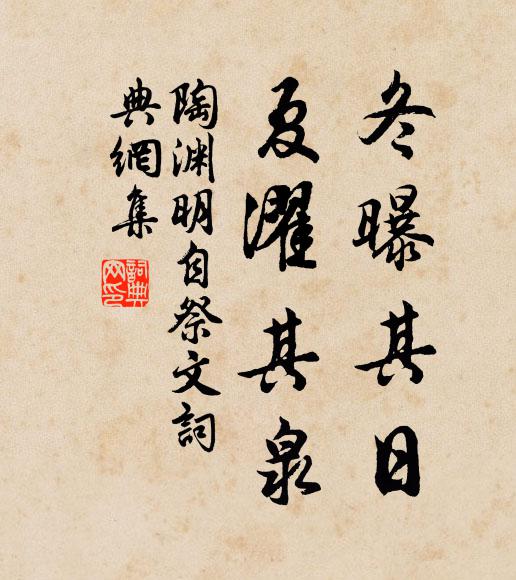 冬曝其日
夏濯其泉
陶渊明自祭文词
典網集
詞典
网印